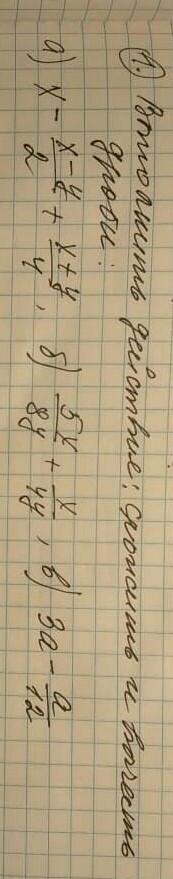 1. Выполнить действие: сложить и вычесть
дроби:
а) x - \frac{x-y}{2} + \frac{x+y}{4}, б) \frac{5x}{8y} + \frac{x}{4y}, в) 3a - \frac{a}{12}